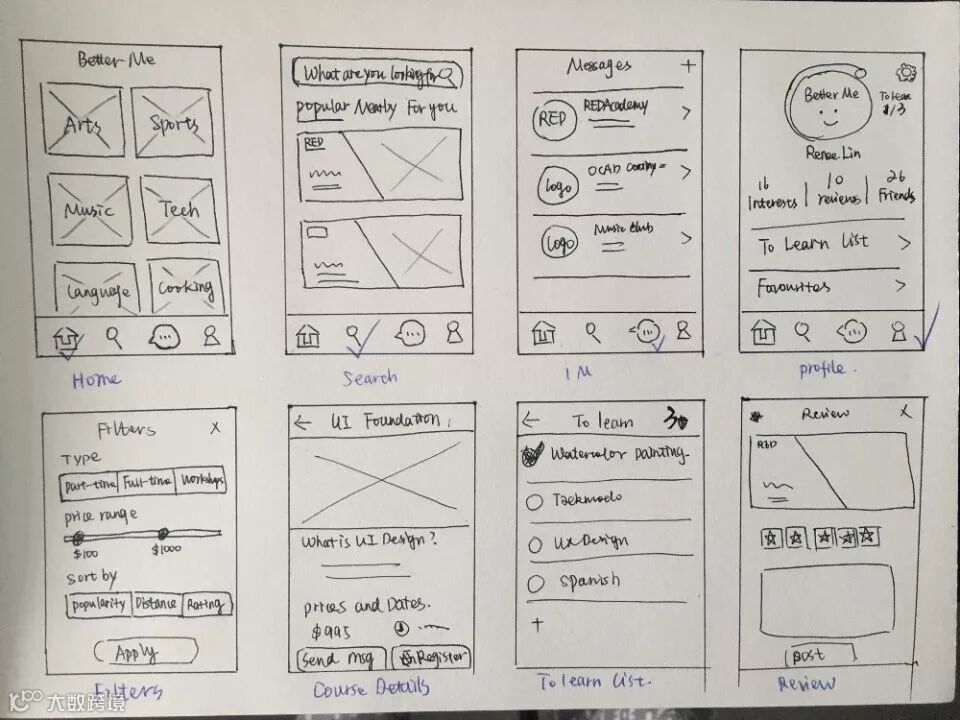 Better Me
Arts
Sports
Music
Tech
Language
Cooking
Home
What are you looking for
popular Nearby For you
RED
Search
Messages +
RED
REDAcademy
Logo
OCAD
Logo
Music Club
IM
Better Me
To Learn
1/3
Renee Lin
16
Interests
10
reviews
26
Friends
To Learn List >
Favourites >
profile.
Filters X
Type
Part-time Full-time Workshops
price range
$100
$1000
Sort by
popularity Distance Rating
Apply
Filters
← UI Foundation
What is UI Design?
prices and Dates.
$995
Send msg
Register
Course Details
← To learn
Watercolor painting
UX Design
Spanish
+
To learn List.
Review X
RED
post
Review
大数跨境